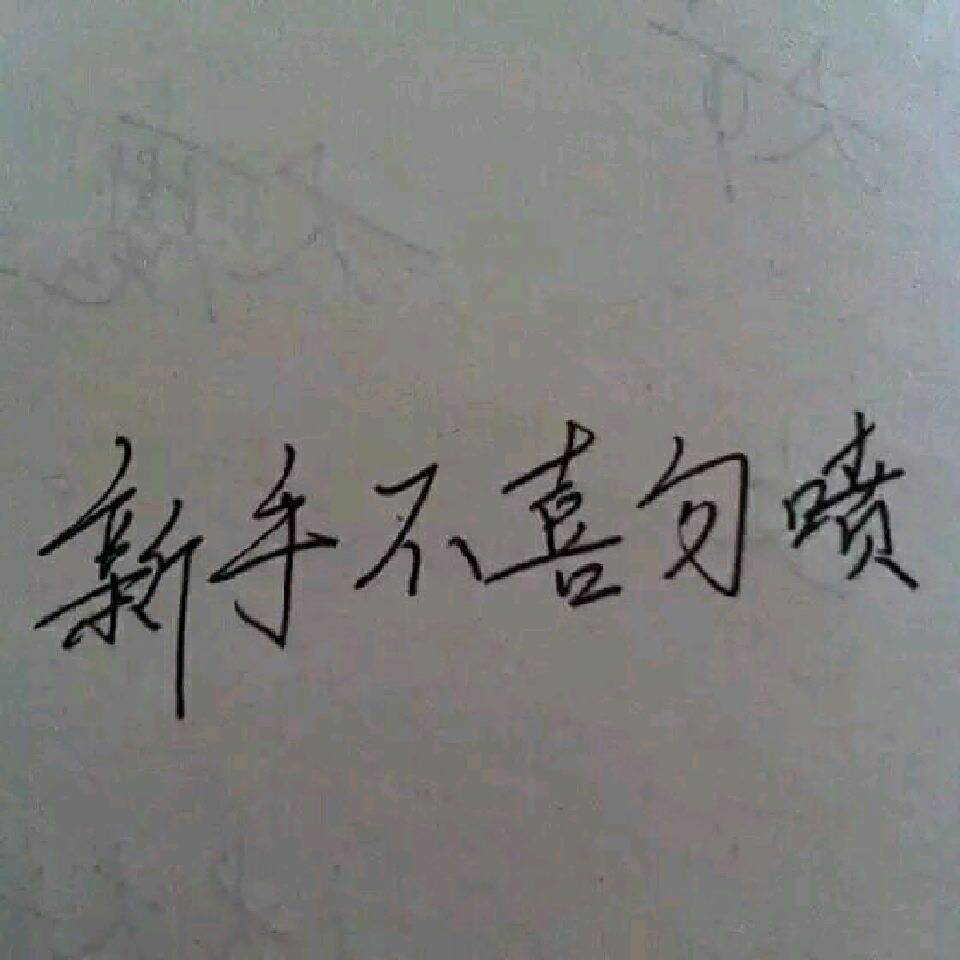 新手不喜勿喷